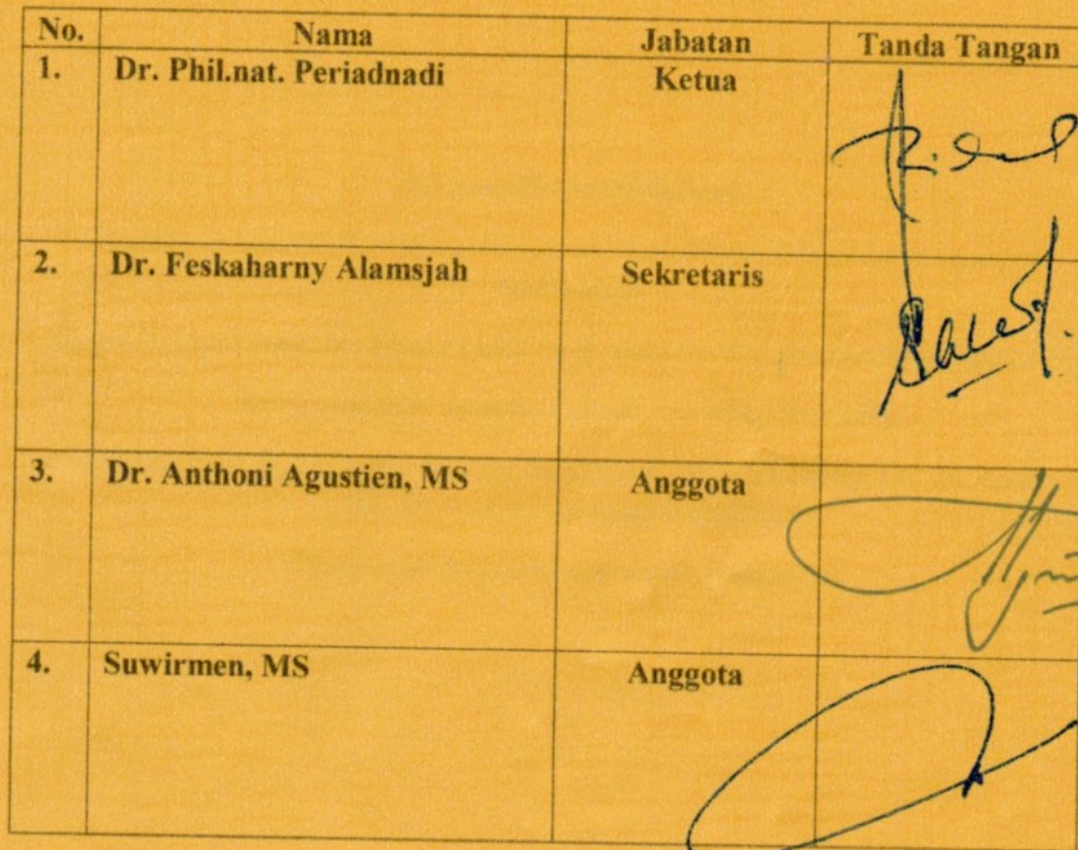 No. Nama Jabatan Tanda Tangan
1. Dr. Phil.nat. Periadnadi Ketua
2. Dr. Feskaharny Alamsjah Sekretaris
3. Dr. Anthoni Agustien, MS Anggota
4. Suwirmen, MS Anggota